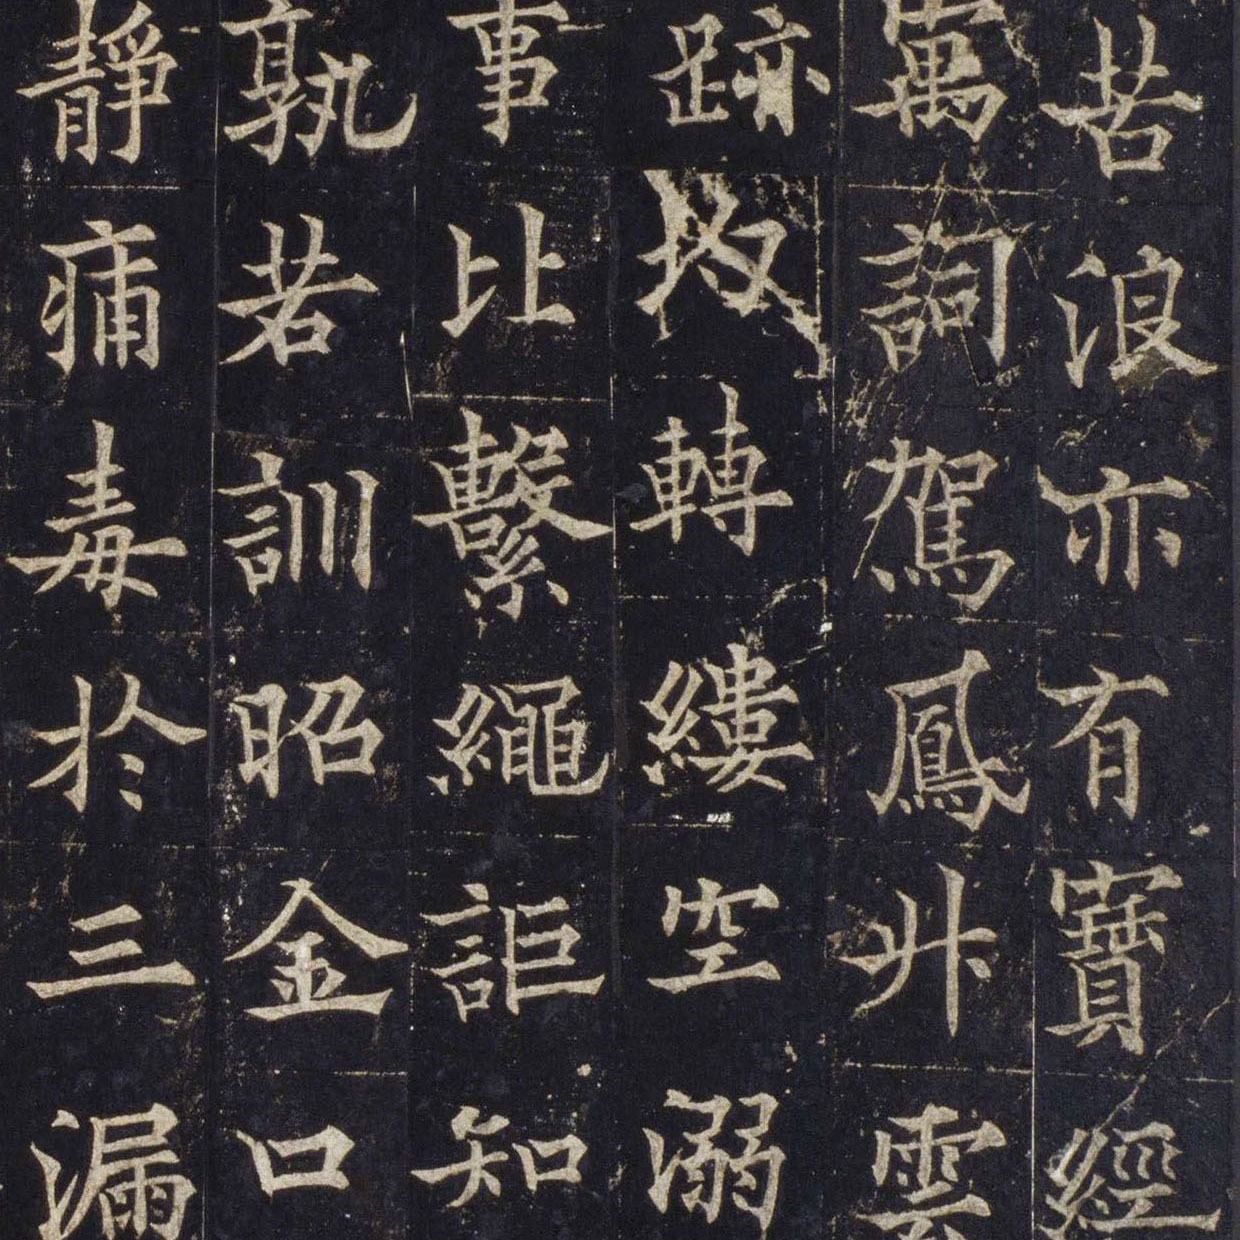 苦浪亦有寶經
萬詞駕鳳升雲
跡均轉縷空溺
事比繫繩詎知
孰若訓昭金口
靜痛毒於三漏